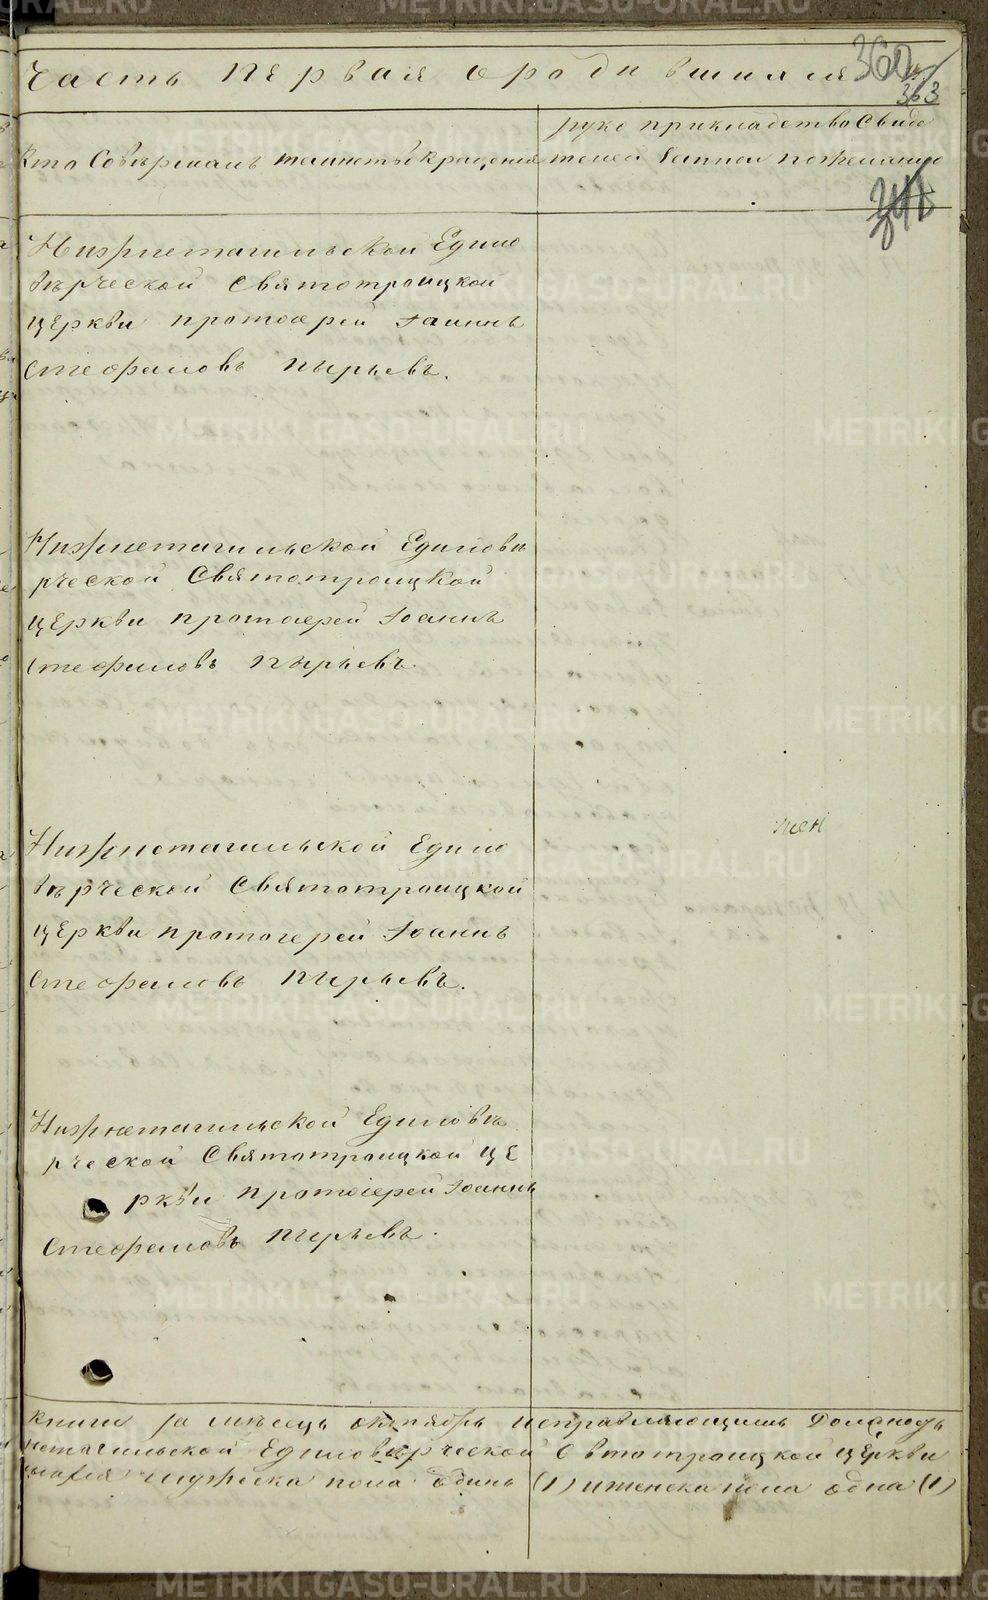 Часть первая о родившихся
360
363
Кто Совершалъ таинство крещенія
руко прикладство Свиде
телей записи по желанію
Нижнетагильской Едино
вѣрческой Святотроицкой
церкви протоіерей Іоаннъ
Стефановъ Пырьевъ.
Нижнетагильской Единовѣ
рческой Святотроицкой
церкви протоіерей Іоаннъ
Стефановъ Пырьевъ.
Нижнетагильской Едино
вѣрческой Святотроицкой
церкви протоіерей Іоаннъ
Стефановъ Пырьевъ.
жен
Нижнетагильской Единовѣ
рческой Святотроицкой це
ркви протоіерей Іоаннъ
Стефановъ Пырьевъ.
книги за мѣсецъ октябрь исправляющимъ
нетагильской Единовѣрческой Свтотроицкой церкви
мужеска пола одинъ (1) и женска пола одна (1)
METRIKI.GASO-URAL.RU